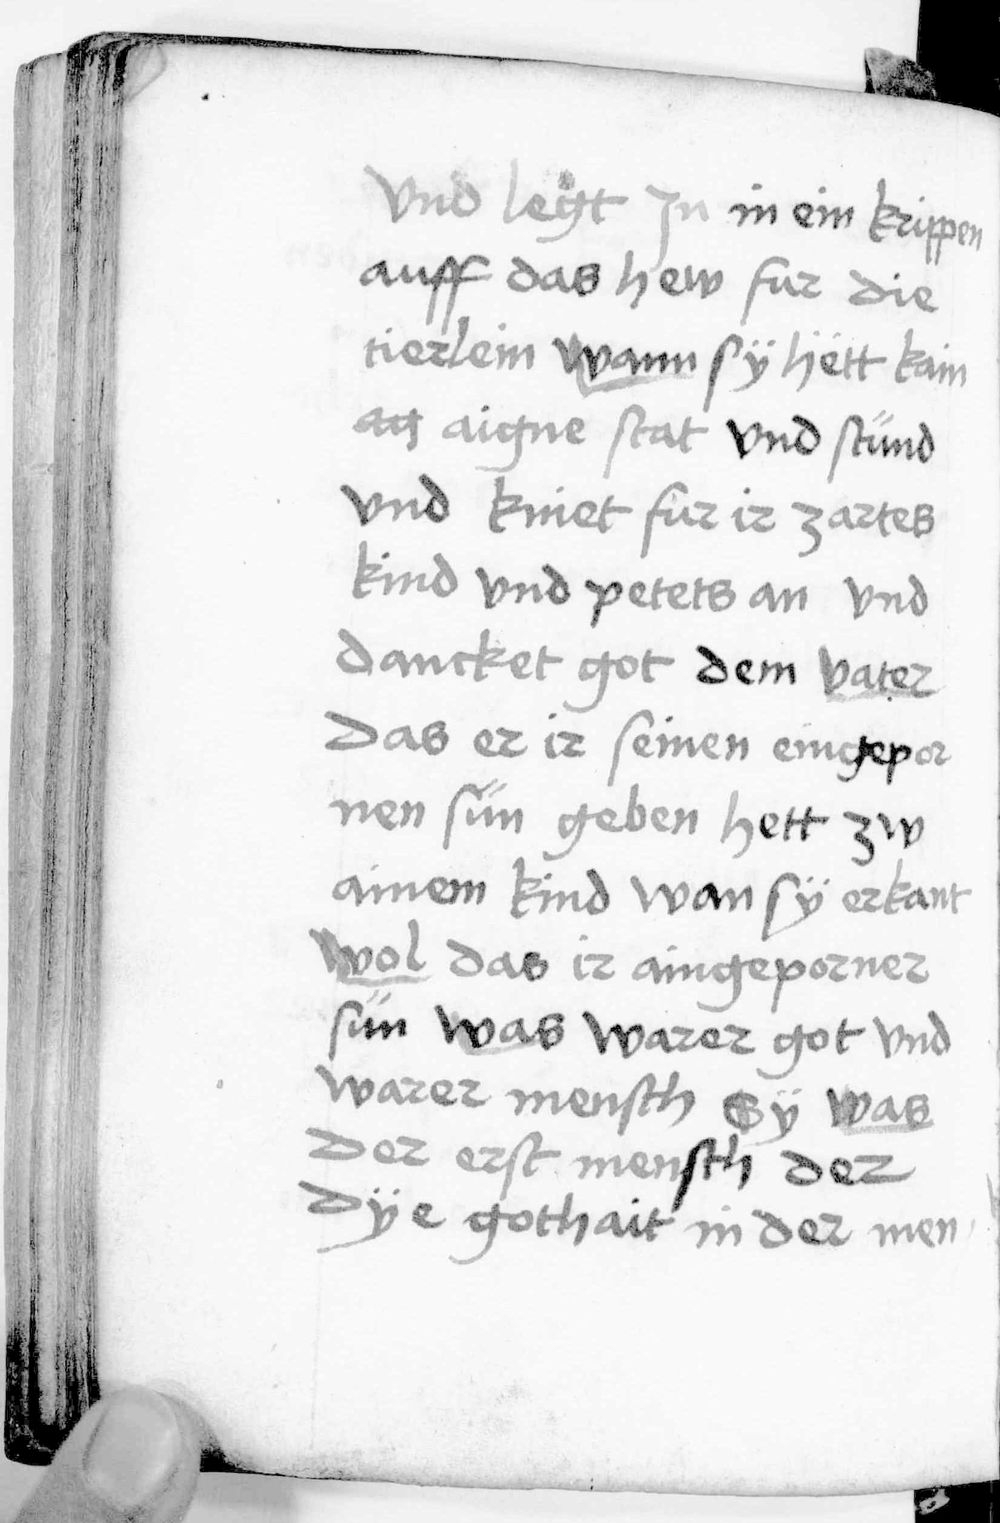 vnd legt Jn in ein krippen
auff das hew fur die
tierlein wann sÿ hëtt kain
aigne stat vnd stünd
vnd kniet fur ir zartes
kind vnd petets an vnd
dancket got dem vater
Das er ir seinen eingepor
nen sün geben hett zw
ainem kind wan sÿ erkant
wol das ir aingeporner
sün was warer got vnd
warer mensch Sÿ was
Der erst mensch der
Dÿe gothait in der men